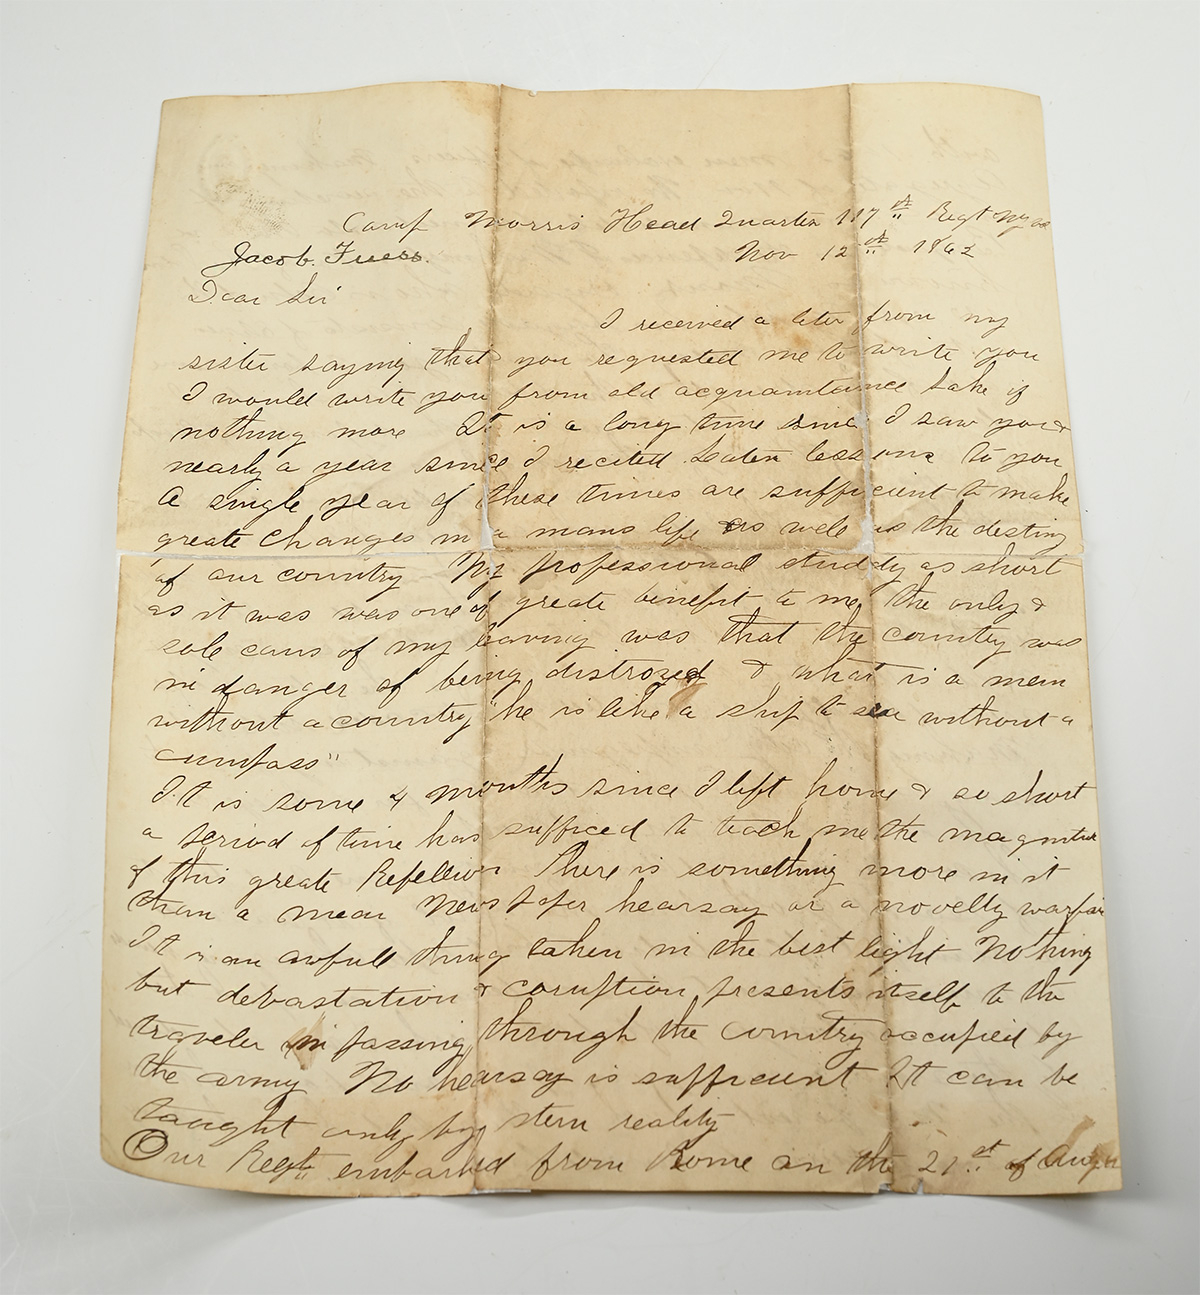 Camp Morris Head Quarters 117th Regt NY
Nov 12th 1862
Jacob. Fuess.
Dear Sir
I received a leter from my
sister saying that you requested me to write you
I would write you from old acquaintance sake if
nothing more It is a long time since I saw you &
nearly a year since I recited Laten lessons to you
A single year of these times are sufficient to make
greate changes in a mans life as well as the destiny
of our country My professional studdy as short
as it was was one of greate benefit to me the only &
sole caus of my leaving was that the country was
in danger of being distroyed & what is a man
without a country "he is like a ship to sea without a
cumpass"
It is some 4 months since I left home & so short
a period of time has sufficed to teach me the magnitude
of this greate Rebellion There is something more in it
than a mear News paper hearsay or a novelty warfair
It is an awfull thing taken in the best light Nothing
but devastation & coruption presents itself to the
traveler in passing through the country occupied by
the army No hearsay is sufficient It can be
taught only by stern reality
Our Regt embarked from Rome on the 21st of Augu